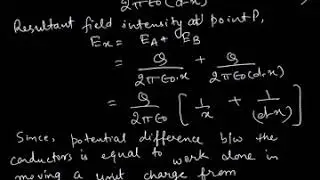 2πε0(d-x)
Resultant field intensity at point P,
Ex = EA + EB
= Q/2πε0.x + Q/2πε0(d-x)
= Q/2πε0 [ 1/x + 1/(d-x) ]
Since, potential difference b/w the
conductors is equal to work done in
moving a unit charge from